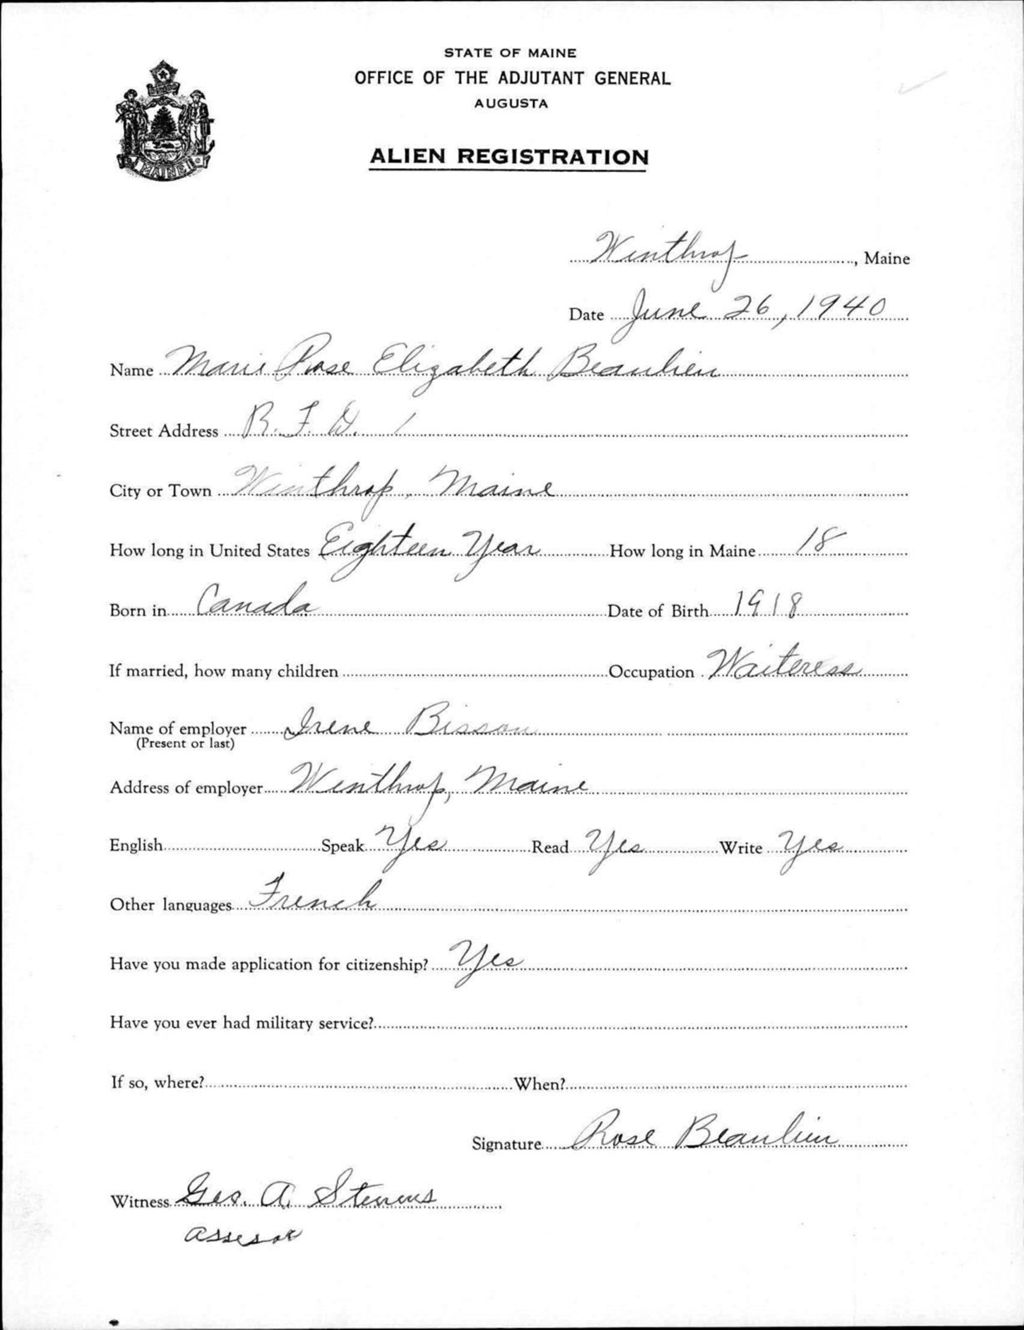 STATE OF MAINE
OFFICE OF THE ADJUTANT GENERAL
AUGUSTA
ALIEN REGISTRATION
MAINE
Winthrop, Maine
Date June 26, 1940
Name Marie Rose Elizabeth Beaulieu
Street Address R. F. D. 1
City or Town Winthrop, Maine
How long in United States Eighteen Year How long in Maine 18
Born in Canada Date of Birth 1918
If married, how many children Occupation Waiteress
Name of employer Irene Bisson
(Present or last)
Address of employer Winthrop, Maine
English Speak Yes Read Yes Write Yes
Other languages French
Have you made application for citizenship? Yes
Have you ever had military service?
If so, where? When?
Signature Rose Beaulieu
Witness Geo. A. Stevens
Assesor